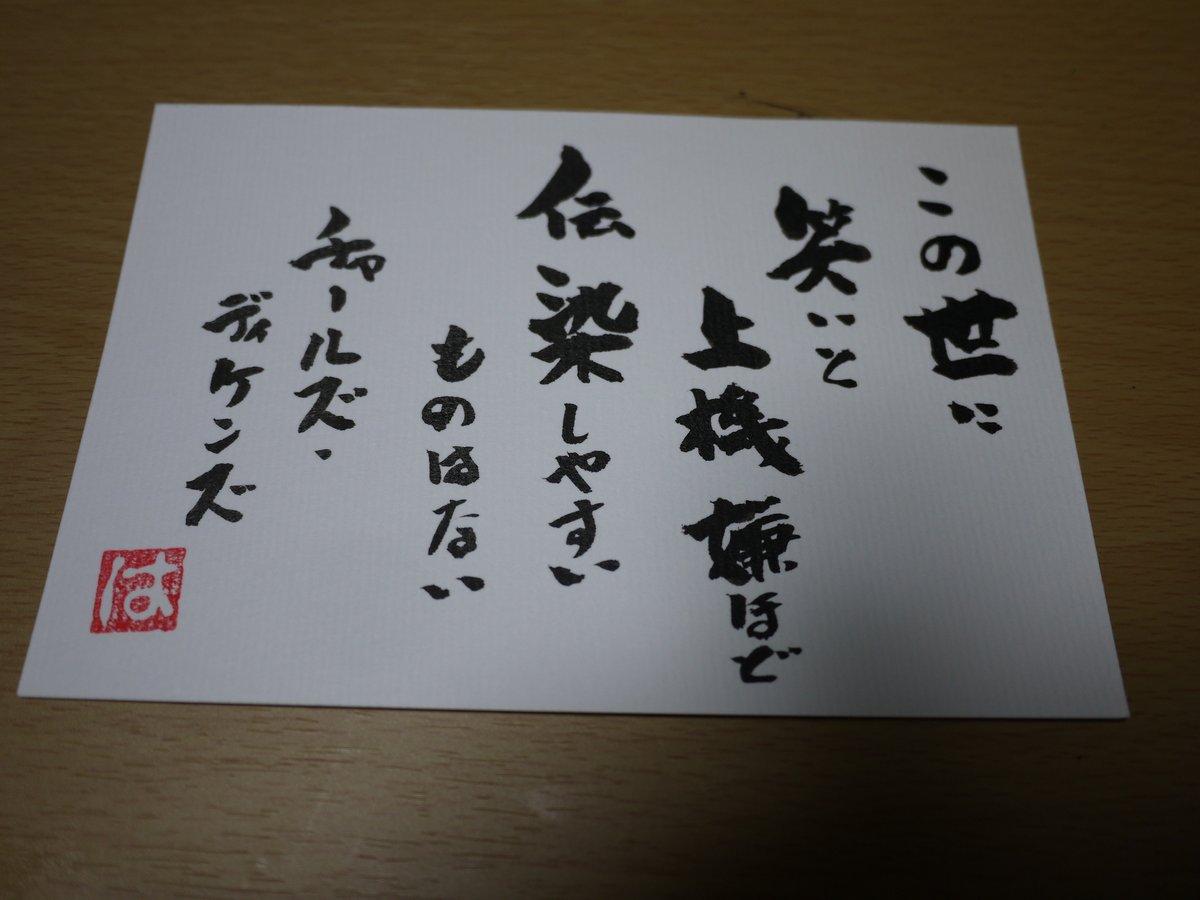 この世に
笑いと
上機嫌ほど
伝染しやすい
ものはない
チャールズ・
ディケンズ
は